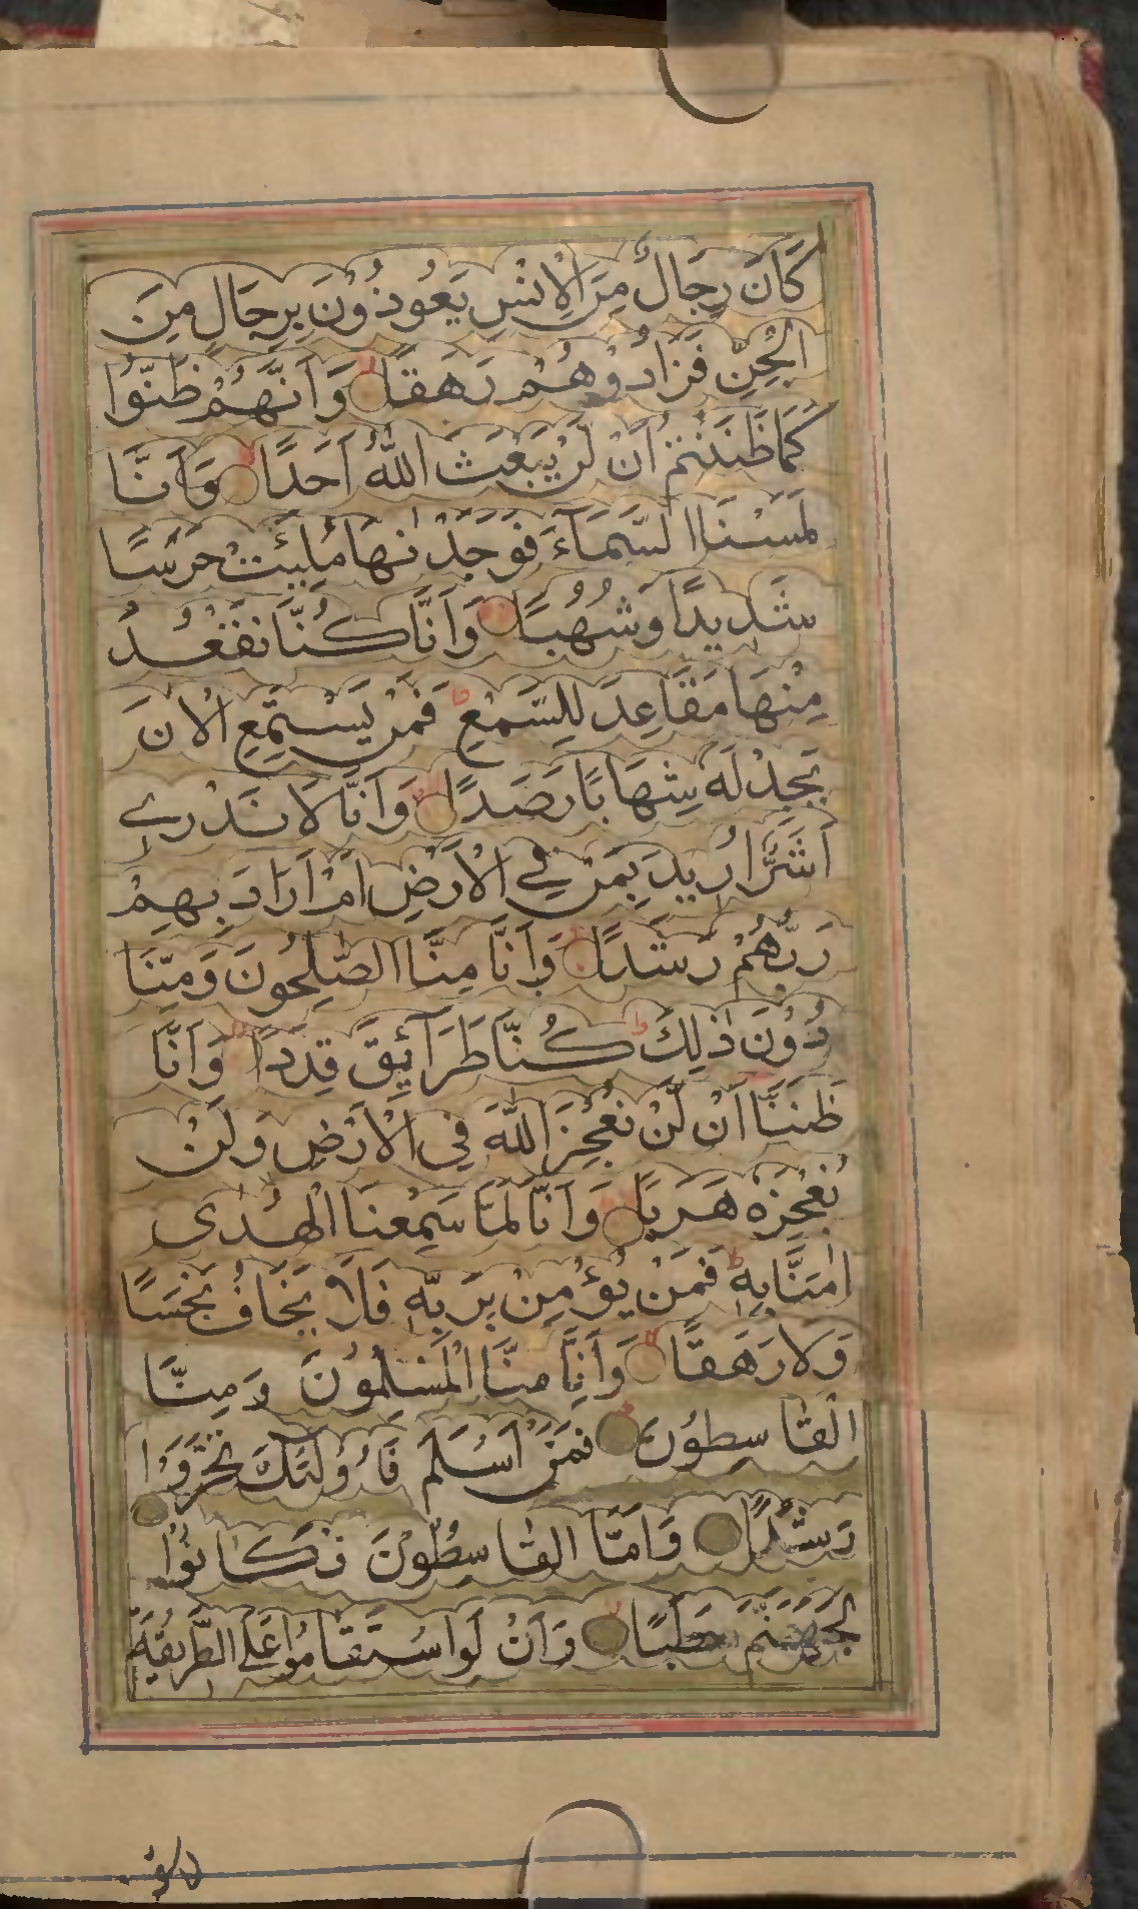 كَانَ رِجَالٌ مِنَ الْاِنْسِ يَعُوذُوْنَ بِرِجَالٍ مِنَ
الْجِنِّ فَزَادُوْهُمْ رَهَقًا وَاَنَّهُمْ ظَنُّوْا
كَمَا ظَنَنْتُمْ اَنْ لَنْ يَبْعَثَ اللّٰهُ اَحَدًا وَاَنَّا
لَمَسْنَا السَّمَآءَ فَوَجَدْنٰهَا مُلِئَتْ حَرَسًا
شَدِيدًا وَشُهُبًا وَاَنَّا كُنَّا نَقْعُدُ
مِنْهَا مَقَاعِدَ لِلسَّمْعِ ط فَمَنْ يَسْتَمِعِ الْاٰنَ
يَجِدْ لَهٗ شِهَابًا رَصَدًا وَاَنَّا لَا نَدْرِے
اَشَرٌّ اُرِيدَ بِمَنْ فِے الْاَرْضِ اَمْ اَرَادَ بِهِمْ
رَبُّهُمْ رَشَدًا وَاَنَّا مِنَّا الصّٰلِحُونَ وَمِنَّا
دُوْنَ ذٰلِكَ ط كُنَّا طَرَآئِقَ قِدَدًا وَاَنَّا
ظَنَنَّا اَنْ لَنْ نُعْجِزَ اللّٰهَ فِى الْاَرْضِ وَلَنْ
نُعْجِزَهٗ هَرَبًا وَاَنَّا لَمَّا سَمِعْنَا الْهُدٰى
اٰمَنَّا بِهٖ ط فَمَنْ يُؤْمِنْ بِرَبِّهٖ فَلَا يَخَافُ بَخْسًا
وَلَا رَهَقًا وَاَنَّا مِنَّا الْمُسْلِمُوْنَ وَمِنَّا
الْقٰاسِطُوْنَ فَمَنْ اَسْلَمَ فَاُولٰئِكَ تَحَرَّوْا
رَشَدًا وَاَمَّا الْقٰاسِطُوْنَ فَكَانُوْا
لِجَهَنَّمَ حَطَبًا وَاَنْ لَوِ اسْتَقَامُوْا عَلَى الطَّرِيقَةِ